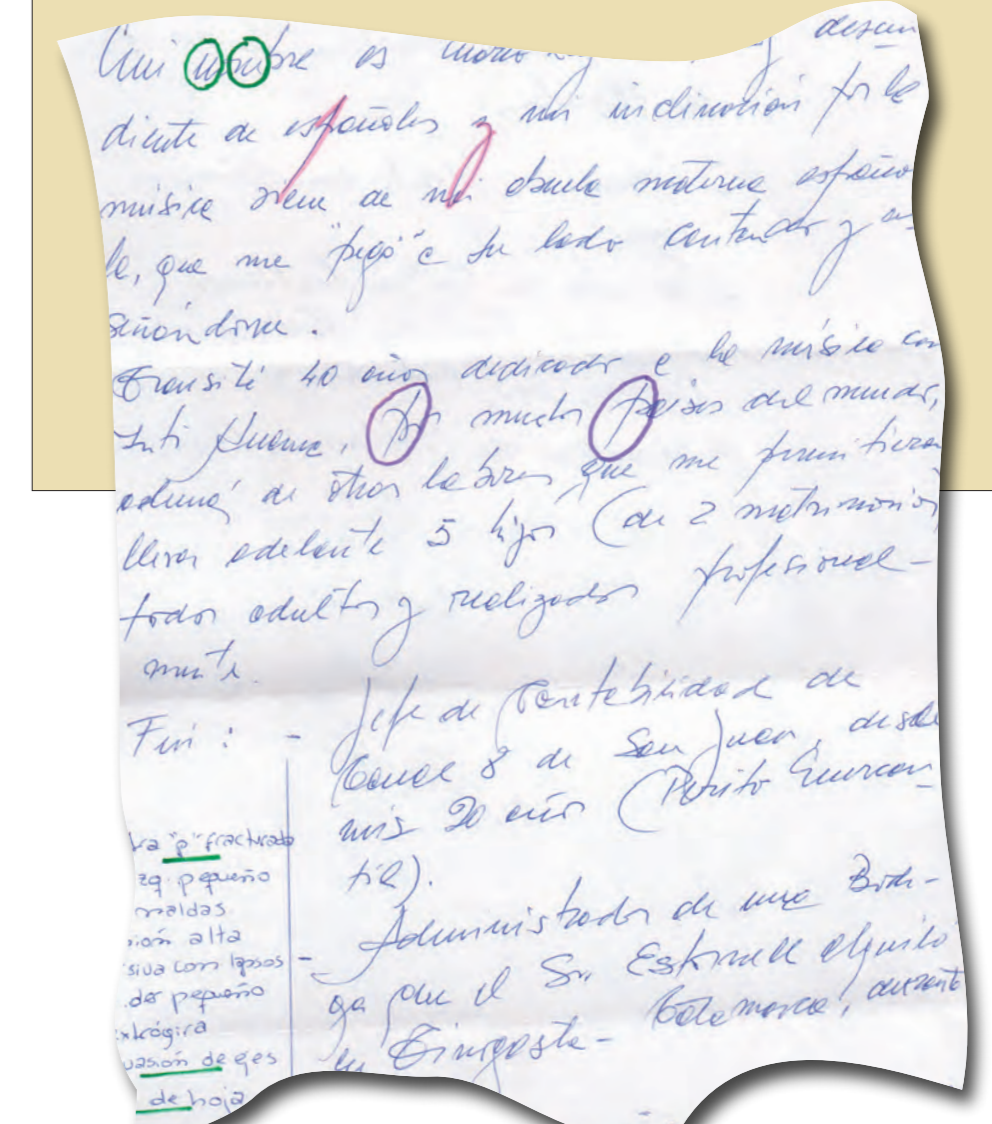 mi nombre es descen
diente de españoles y mi inclinación por la
música viene de mi abuela materna españo
la, que me "pegó" a su lado cantando y en-
señándome.
Transité 40 años dedicados a la música con
Inti Huama, por muchos países del mundo,
además de otras labores que me permitieron
llevar adelante 5 hijos (de 2 matrimonios
todos adultos y realizados profesional-
mente.
Fui : - Jefe de Contabilidad de
Canal 8 de San Juan, desde
mis 20 años (Perito Mercan-
til).
- Administrador de una Bode-
ga que el Sr. Estornell alquiló
en Tinogasta - Catamarca, durante
tra "p" fracturada
izq. pequeño
maldas
sión alta
siva con lapsos
der pequeño
extrógira
vasión de ejes
de hoja